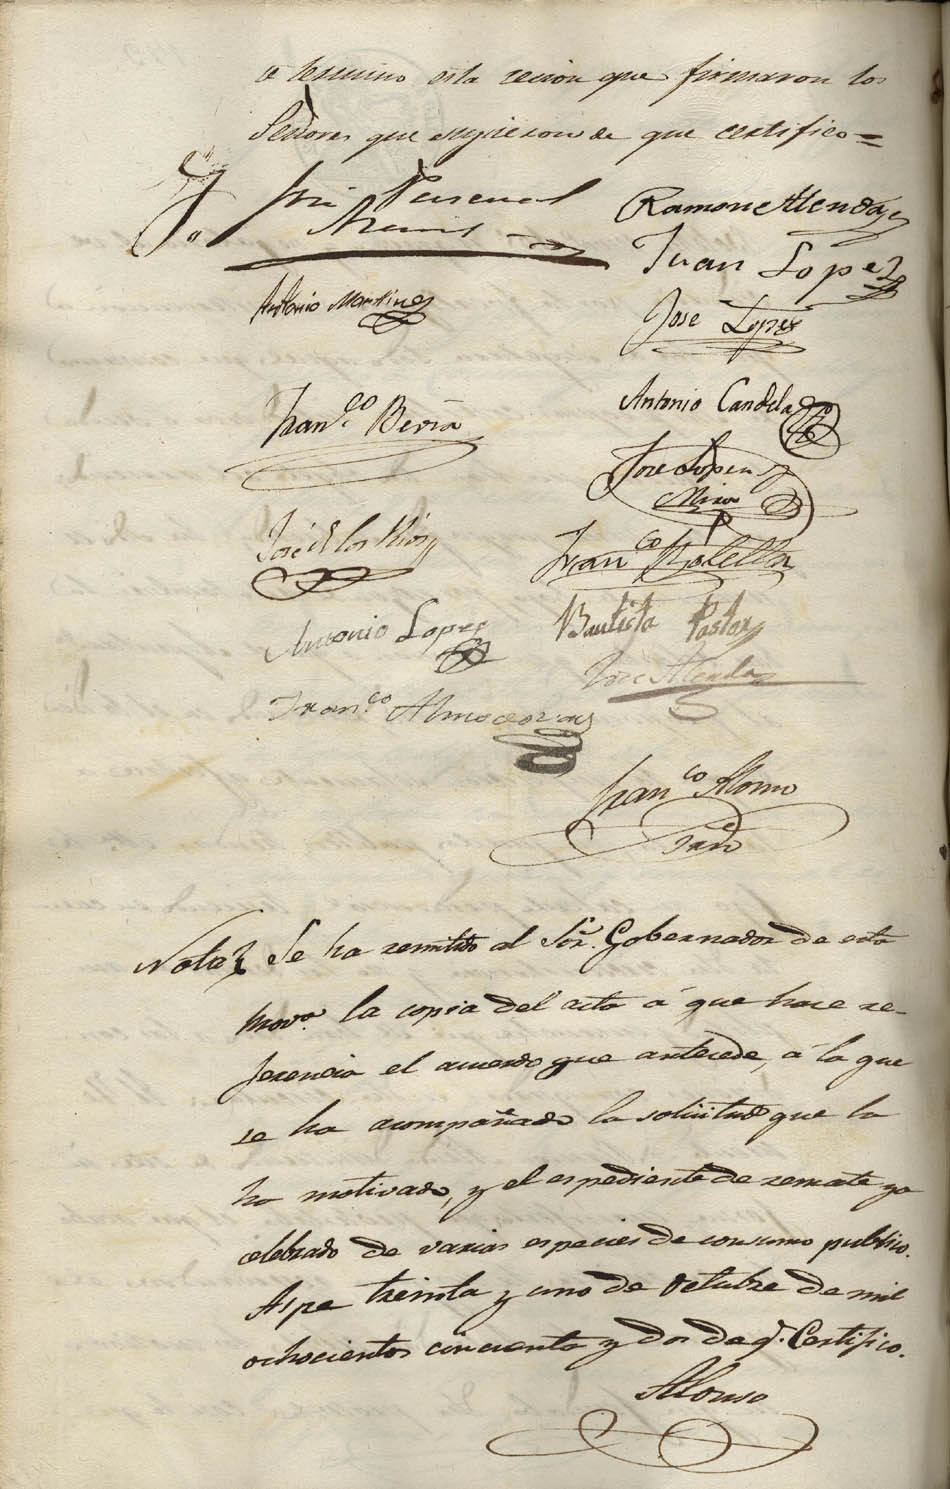 termino esta secion que firmaron los
Señores que supieron de que certifico=
José Pascual
Ramon Alenda
Juan Lopez
Antonio Martinez
José Lopez
Antonio Candela
Fran.co Beviá
José Lopez
Mira
José de los Rios
Fran.co
Antonio Lopez
Bautista Pastor
José Alenda
Fran.co Almodovar
Fran.co Alonso
Srio
Nota Se ha remitido al Sor. Gobernador de esta
prova. la copia del acta á que hace re-
ferencia el acuerdo que antecede, á la que
se ha acompañado la solicitud que la
ha motivado, y el espediente de remate ya
celebrado de varias especies de consumo publico.
Aspe treinta y uno de Octubre de mil
ochocientos cincuenta y dos de q. Certifico.
Alonso